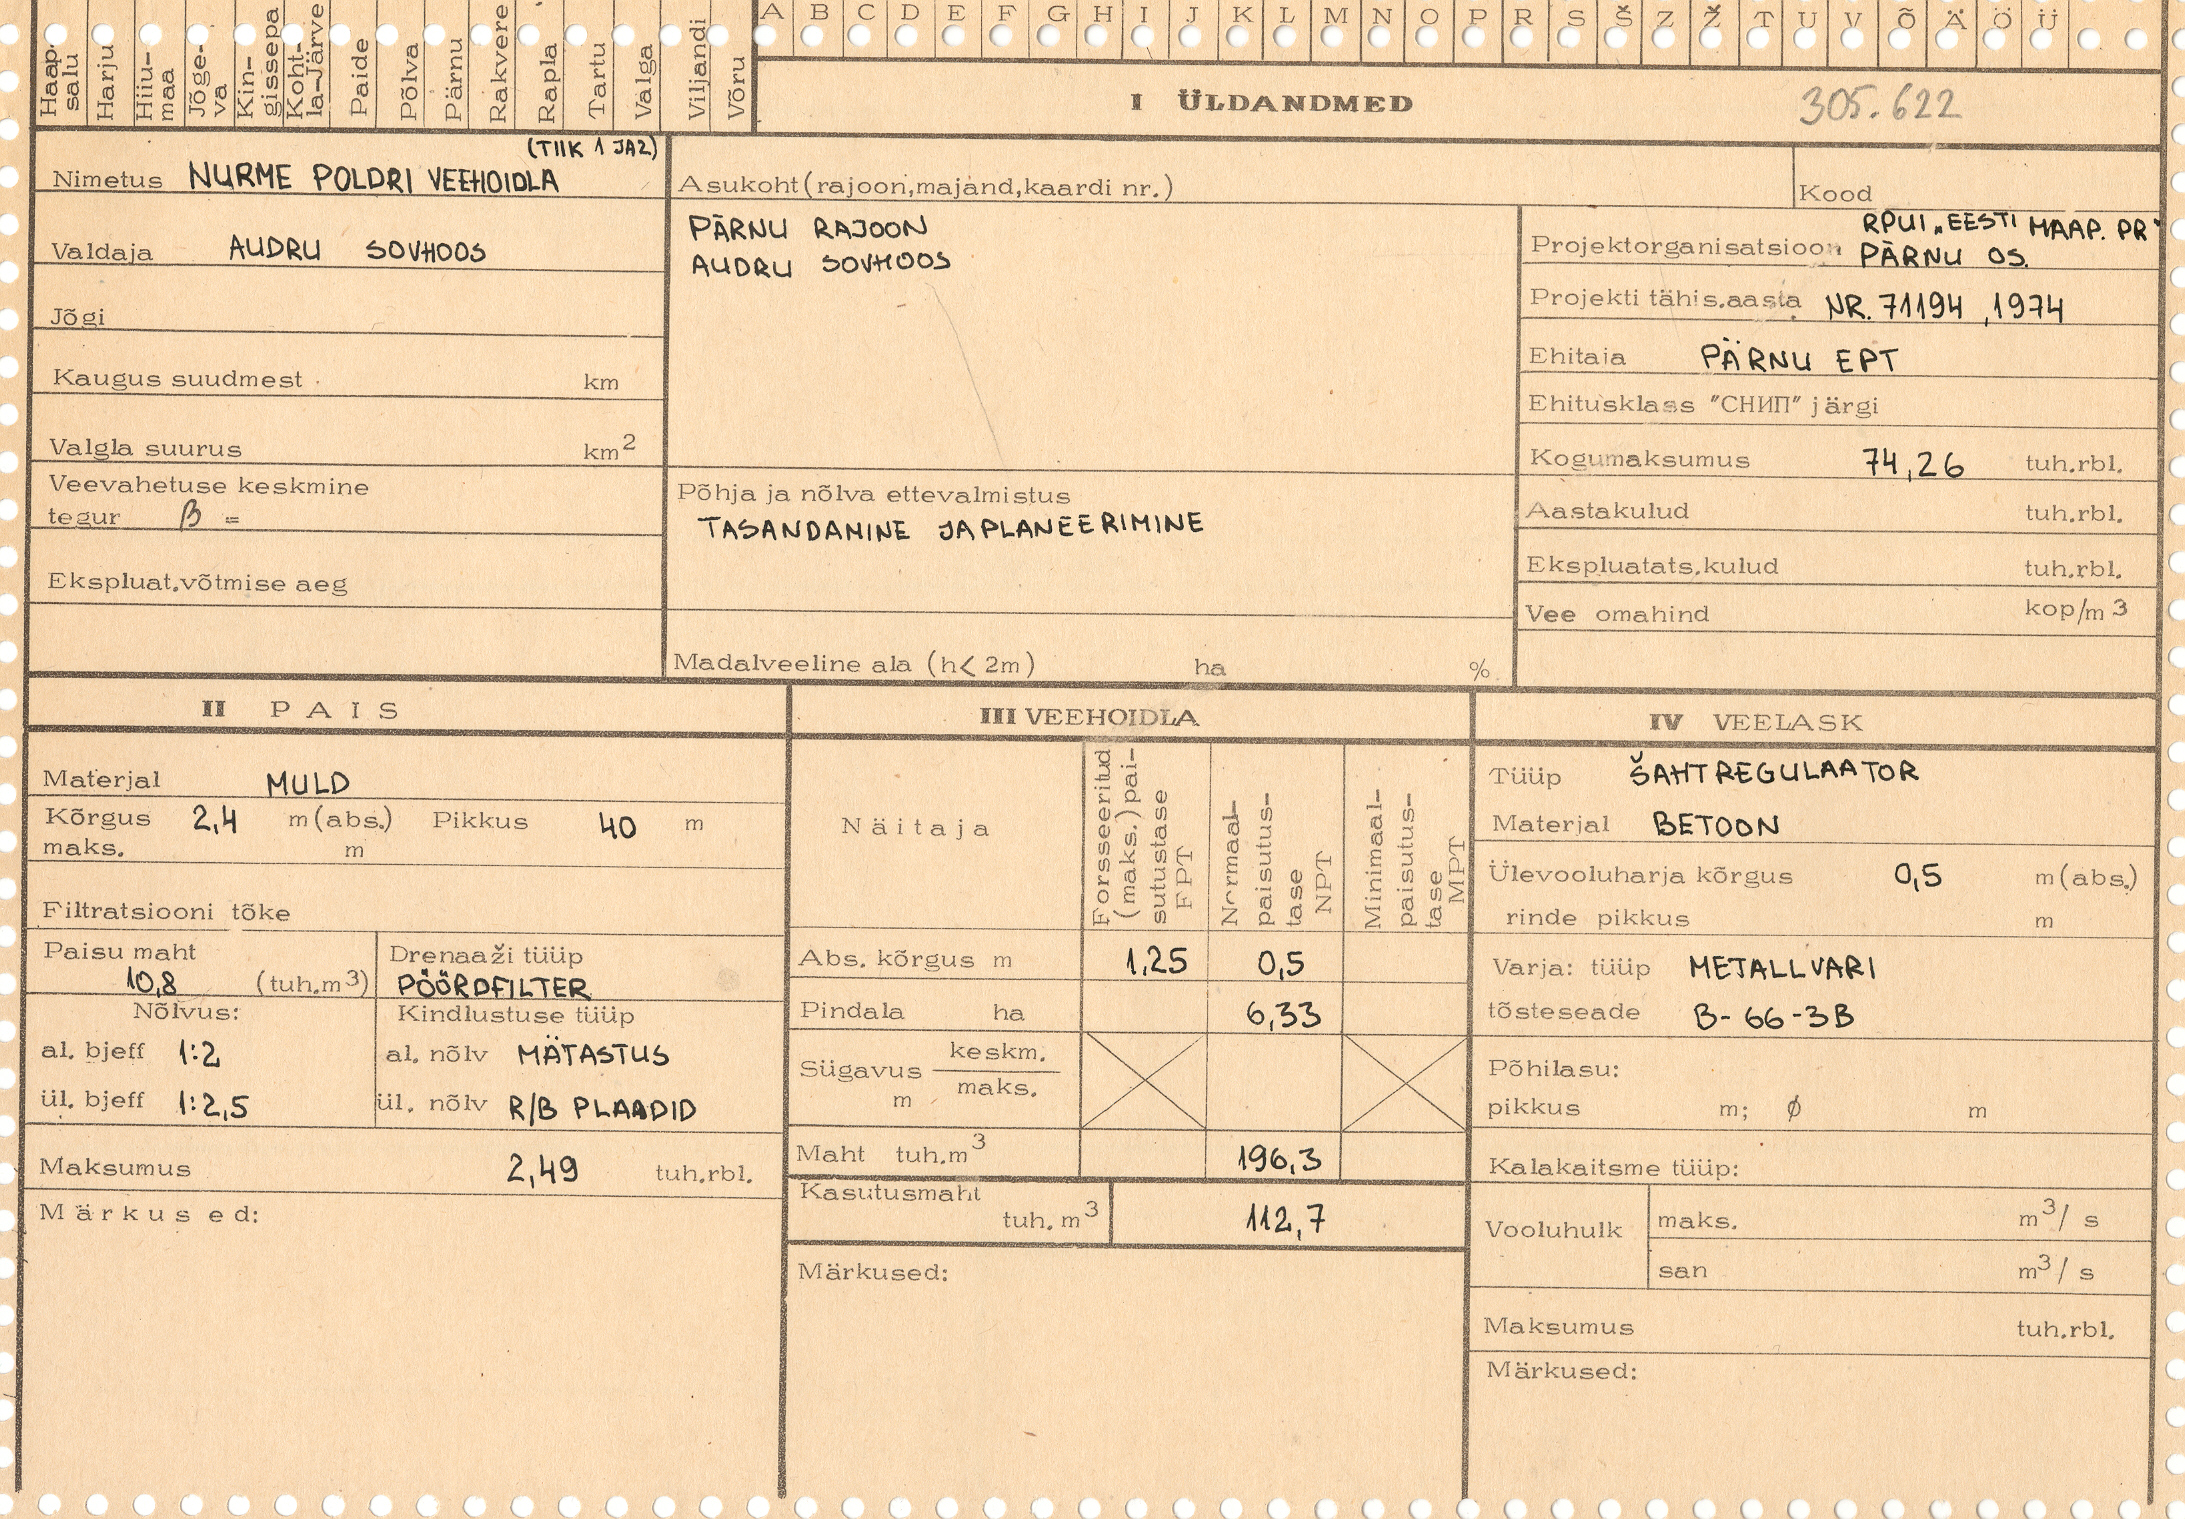 Haap-
salu
Harju
Hiiu-
maa
Jõge-
va
Kin-
gissepa
Koht-
la-Järve
Paide
Põlva
Pärnu
Rakvere
Rapla
Tartu
Valga
Viljandi
Võru
A B C D E F G H I J K L M N O P R S Š Z Ž T U V Õ Ä Ö Ü
I ÜLDANDMED 305.622
(TIIK 1 JA2)
Nimetus NURME POLDRI VEEHOIDLA
Valdaja AUDRU SOVHOOS
Jõgi
Kaugus suudmest km
Valgla suurus km2
Veevahetuse keskmine
tegur β =
Ekspluat.võtmise aeg
Asukoht(rajoon,majand,kaardi nr.)
PÄRNU RAJOON
AUDRU SOVHOOS
Põhja ja nõlva ettevalmistus
TASANDAMINE JA PLANEERIMINE
Madalveeline ala (h< 2m) ha %
Kood
RPUI „EESTI MAAP. PR"
Projektorganisatsioon PÄRNU OS.
Projekti tähis.aasta NR. 71194 ,1974
Ehitaja PÄRNU EPT
Ehitusklass "СНИП" järgi
Kogumaksumus 74,26 tuh.rbl.
Aastakulud tuh.rbl.
Ekspluatats.kulud tuh.rbl.
Vee omahind kop/m3
II PAIS
Materjal MULD
Kõrgus 2,4 m(abs.) Pikkus 40 m
maks. m
Filtratsiooni tõke
Paisu maht
10,8 (tuh.m3)
Drenaaži tüüp
PÖÖRDFILTER
Nõlvus:
al. bjeff 1:2
ül. bjeff 1:2,5
Kindlustuse tüüp
al. nõlv MÄTASTUS
ül. nõlv R/B PLAADID
Maksumus 2,49 tuh.rbl.
Märkused:
III VEEHOIDLA
Näitaja
Forsseeritud
(maks.)pai-
sutustase
FPT
Normaal-
paisutus-
tase
NPT
Minimaal-
paisutus-
tase
MPT
Abs. kõrgus m 1,25 0,5
Pindala ha 6,33
Sügavus keskm.
maks.
m
Maht tuh.m3 196,3
Kasutusmaht
tuh.m3 112,7
Märkused:
IV VEELASK
Tüüp ŠAHTREGULAATOR
Materjal BETOON
Ülevooluharja kõrgus 0,5 m(abs.)
rinde pikkus m
Varja: tüüp METALLVARI
tõsteseade B-66-3B
Põhilasu:
pikkus m; ∅ m
Kalakaitsme tüüp:
Vooluhulk maks. m3/s
san m3/s
Maksumus tuh.rbl.
Märkused: